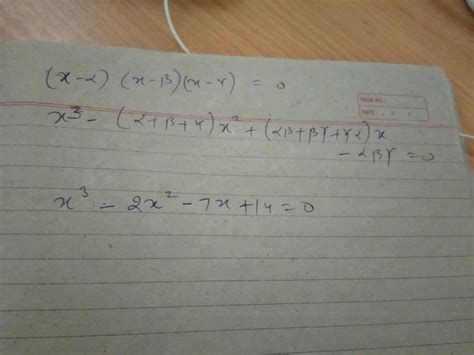 (x-α) (x-β)(x-γ) = 0
PAGE NO.:
DATE: / /
x³ - (α+β+γ)x² + (αβ+βγ+γα)x
- αβγ = 0
x³ - 2x² - 7x + 14 = 0